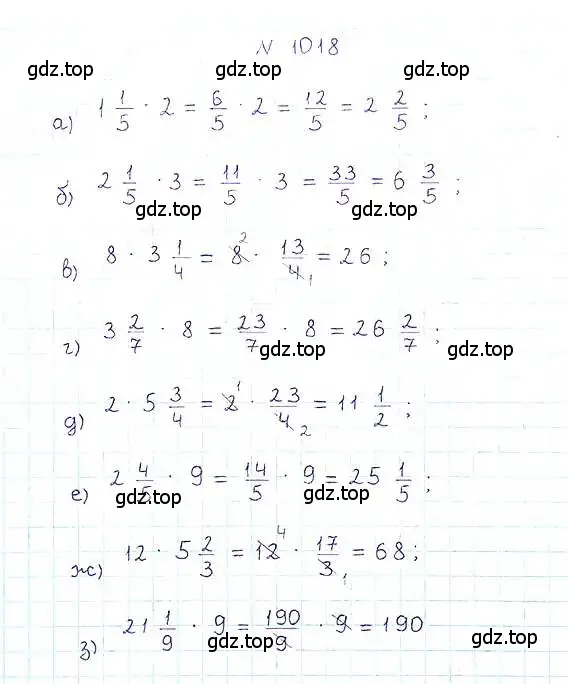 N 1018
gdz.top gdz.top
а) 1 1/5 · 2 = 6/5 · 2 = 12/5 = 2 2/5 ;
б) 2 1/5 · 3 = 11/5 · 3 = 33/5 = 6 3/5 ;
gdz.top gdz.top
в) 8 · 3 1/4 = 8 2 · 13/4 1 = 26 ;
г) 3 2/7 · 8 = 23/7 · 8 = 26 2/7 ;
gdz.top gdz.top
д) 2 · 5 3/4 = 2 1 · 23/4 2 = 11 1/2 ;
е) 2 4/5 · 9 = 14/5 · 9 = 25 1/5 ;
gdz.top gdz.top
ж) 12 · 5 2/3 = 12 4 · 17/3 1 = 68 ;
з) 21 1/9 · 9 = 190/9 · 9 = 190
gdz.top gdz.top